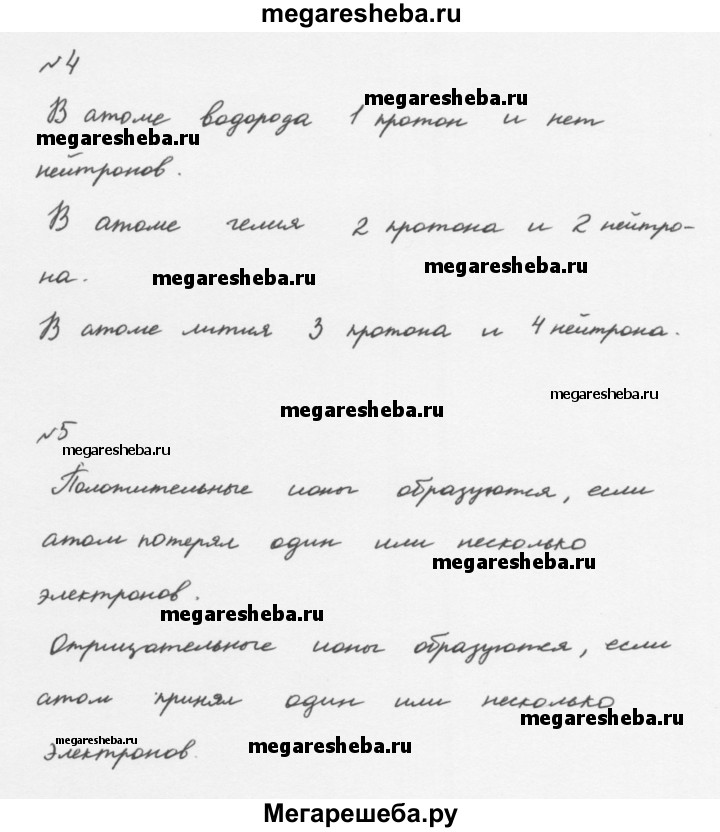 megaresheba.ru
№4
megaresheba.ru
В атоме водорода 1 протон и нет
megaresheba.ru
нейтронов.
В атоме гелия 2 протона и 2 нейтро-
megaresheba.ru
на.
megaresheba.ru
В атоме лития 3 протона и 4 нейтрона.
megaresheba.ru
megaresheba.ru
№5
megaresheba.ru
Положительные ионы образуются, если
атом потерял один или несколько
megaresheba.ru
электронов.
megaresheba.ru
Отрицательные ионы образуются, если
атом принял один или несколько
megaresheba.ru
megaresheba.ru
megaresheba.ru
электронов.
Мегарешеба.ру